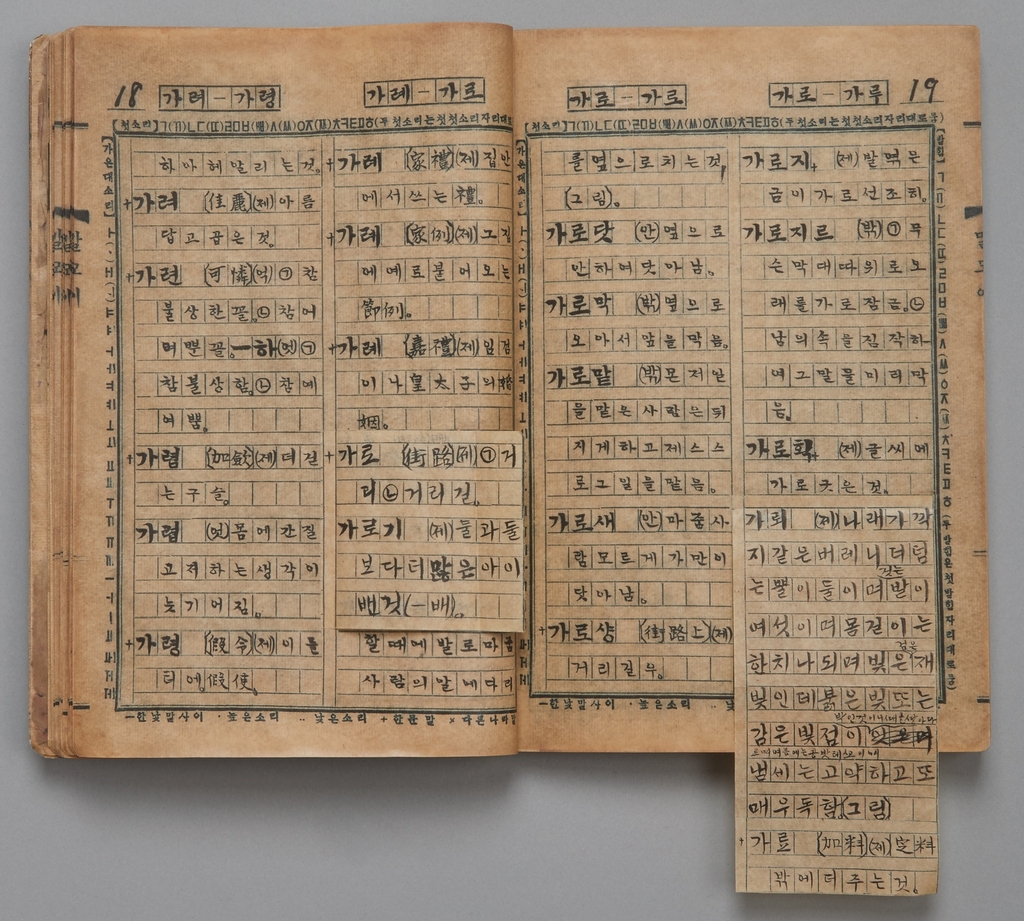 18 가려－가령
가례－가로
하아헤말리는것。
+가려 (佳麗)(제)아름
답고곱은것。
+가련 (可憐)(억)㉠참
불상한꼴。㉡참어
여뿐꼴。━하(엇)㉠
참불상함。㉡참예
여쁨。
+가렴 (加斂)(제)더걷
는구슬。
가렵 (엇)몸에간질
고저하는생각이
늣기어짐。
+가령 (假令)(제)이를
터에。假使。
+가례 (家禮)(제)집안
에서쓰는禮。
+가례 (家例)(제)그집
에예로붙어오는
節例。
+가례 (嘉禮)(제)임검
이나皇太子의婚
姻。
+가로 (街路)(제)㉠거
리㉡거리길。
가로기 (제)둘과둘
보다더많은아이
뻔것(一배)。
할때에발로마줍
사람의말에다리
一한낯말사이 ·높은소리 ··낮은소리 +한문말 ×다른나라말
가로－가로
가로－가루 19
[첫소리]ㄱ(ㄲ)ㄴㄷ(ㄸ)ㄹㅁㅂ(ㅃ)ㅅ(ㅆ)ㅇㅈ(ㅉ)ㅊㅋㅌㅍㅎ(두첫소리는첫첫소리자리대로둠)
를옆으로치는것。
(그림)。
가로닷 (안)옆으로
안하여닷아남。
가로막 (밖)옆으로
오아서앞을막음。
가로맡 (밖)몬저일
을맡은사람은뒤
지게하고제스스
로그일을맡음。
가로새 (안)마줍사
람모르게가만이
닷아남。
+가로상 (街路上)(제)
거리길우。
가로지 (제)발역은
금이가로선조히。
가로지르 (밖)㉠무
슨막대따위로오
래를가로잠금。㉡
남의속을짐작하
여그말을미리막
음。
가로획 (제)글씨에
가로긋은것。
가뢰 (제)나래가각
지같은버레니더텀
는뿔이둘이며발이
여섯이며몸길이는
한치나되며빛은재
빛인데붉은빛또는
감은빛점이
냄세는고약하고또
매우독함。(그림)
+가료 (加料)(제)定料
밖에더주는것。